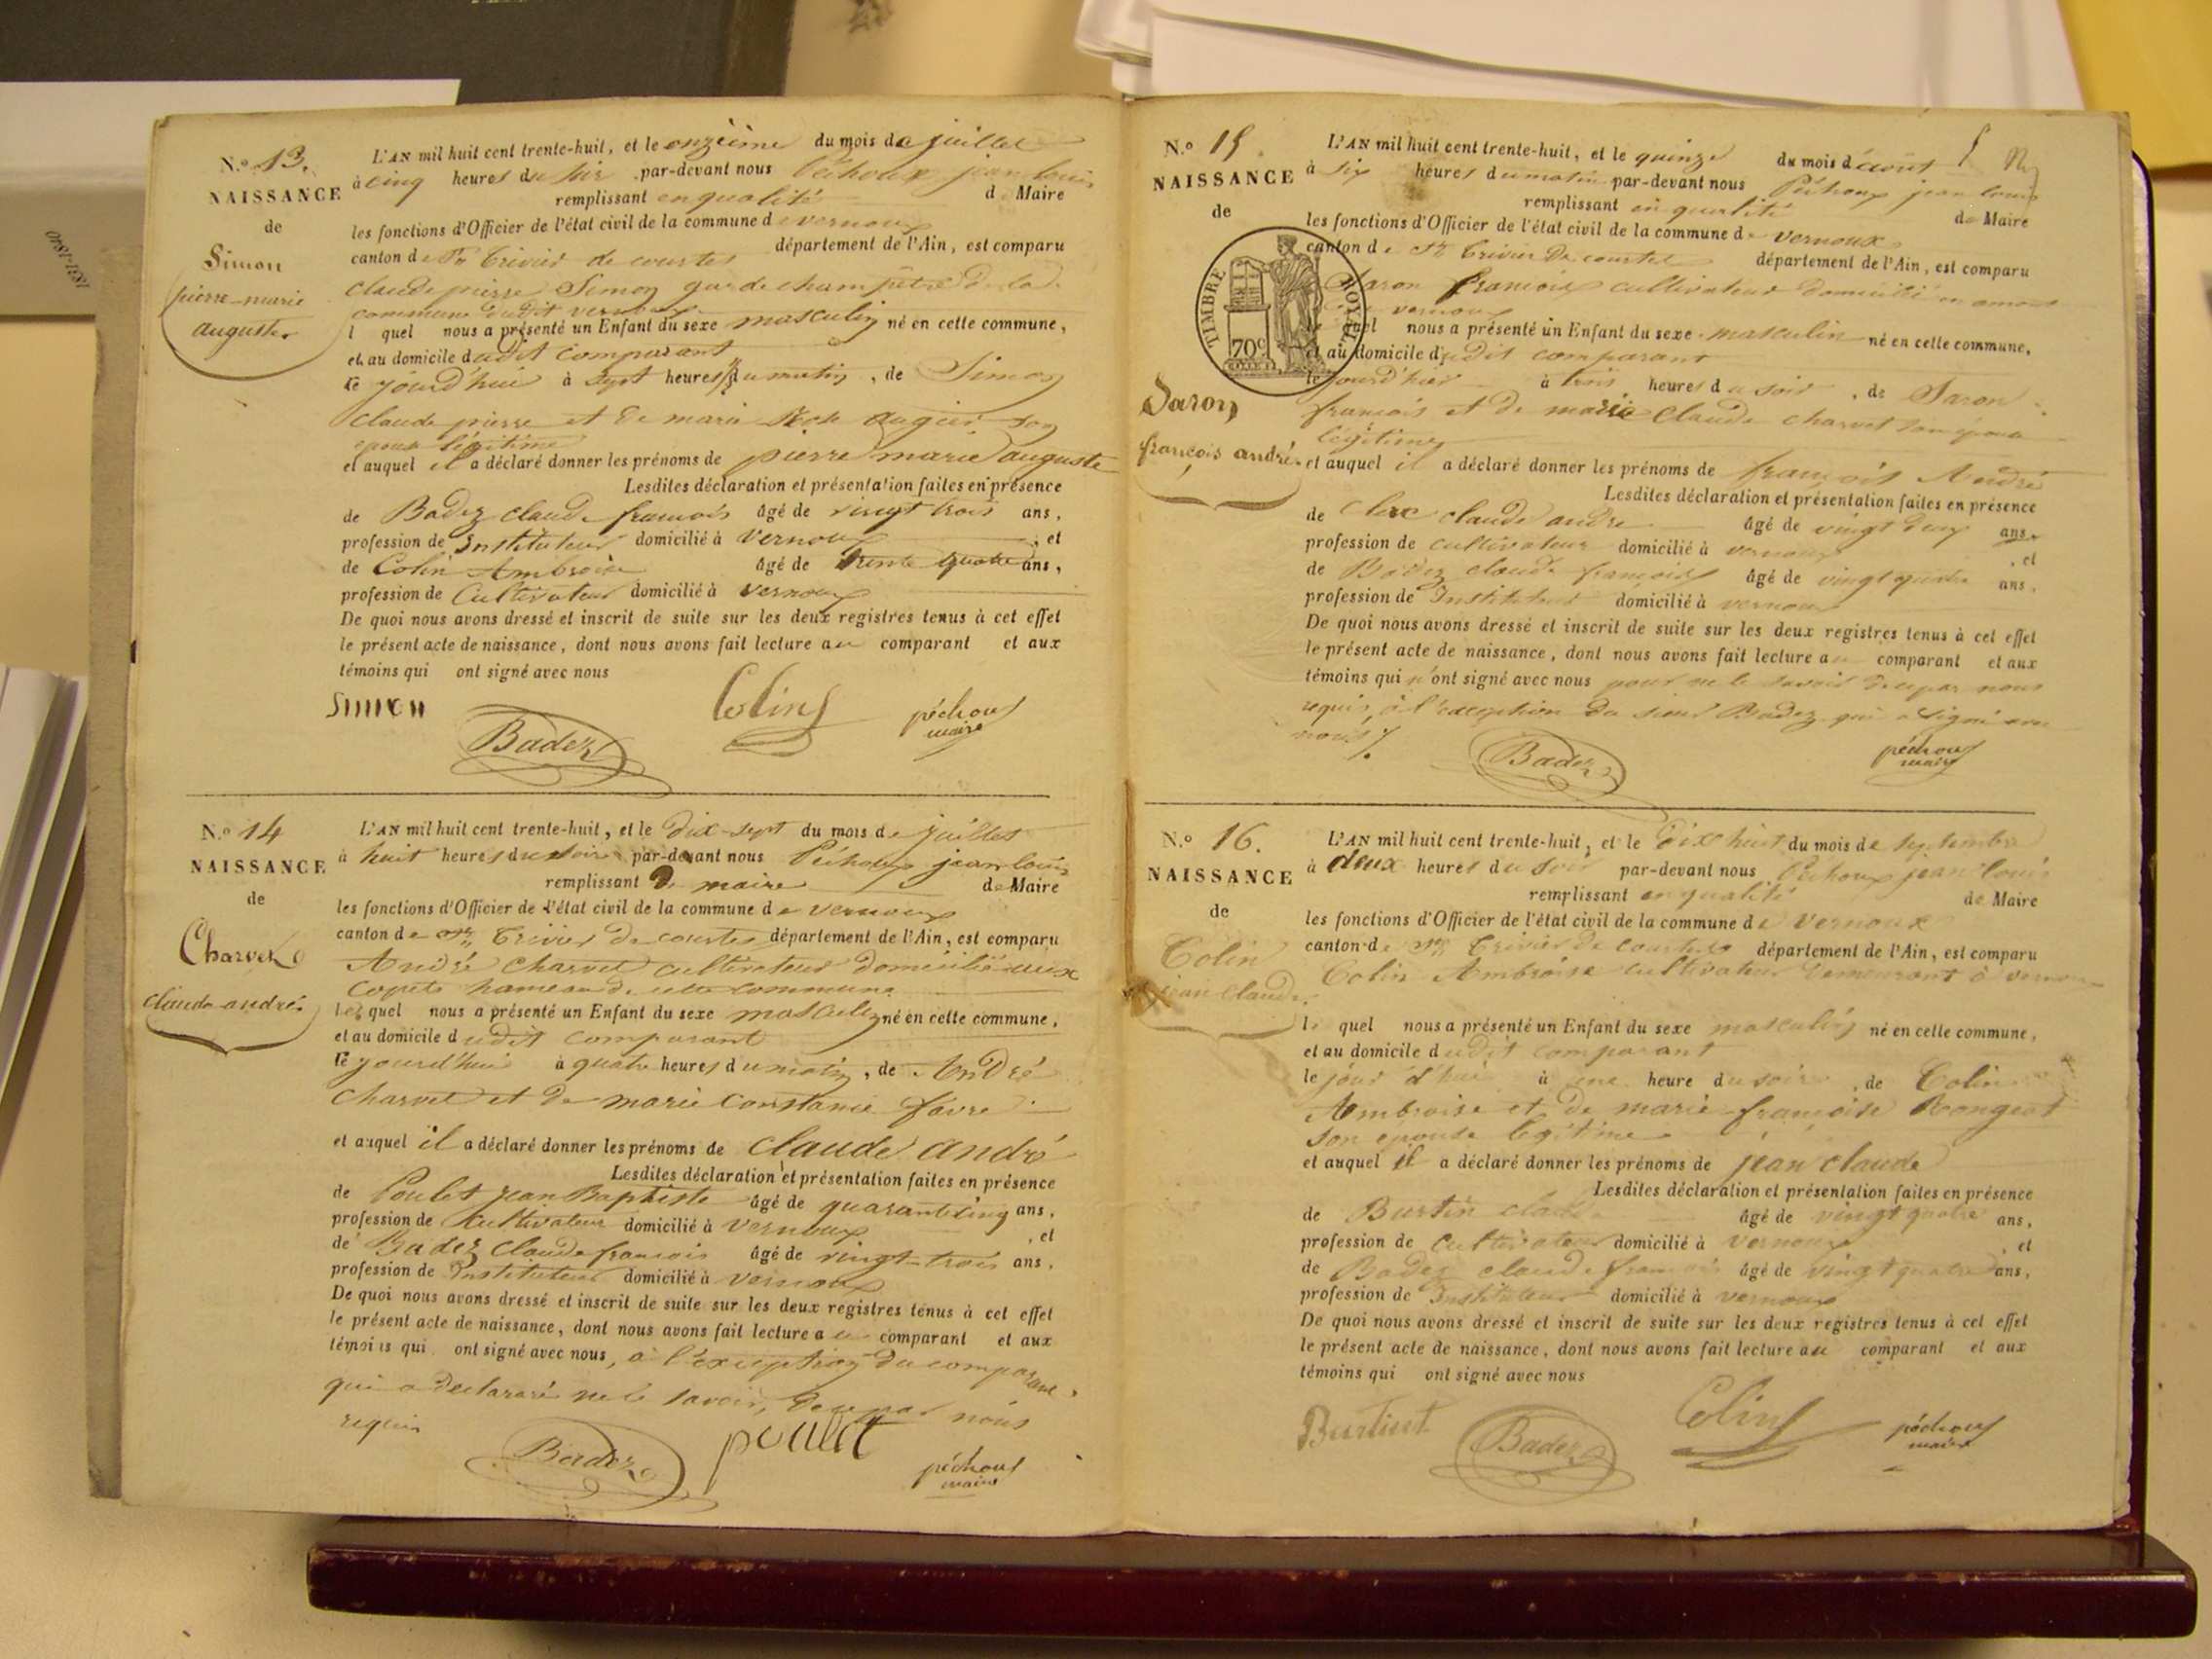 N.o 13.
NAISSANCE
de
Simon
pierre-marie
auguste
L'AN mil huit cent trente-huit, et le onzième du mois de juillet
à cinq heures du soir par-devant nous Péchoux jean louis
remplissant en qualité d Maire
les fonctions d'Officier de l'état civil de la commune de vernoux
canton de St Trivier de courtes département de l'Ain, est comparu
claude pierre Simon garde champêtre de la
commune dudit vernoux
l quel nous a présenté un Enfant du sexe masculin né en cette commune,
et au domicile dudit comparant
le jourd'hui à sept heures du matin, de Simon
claude pierre et de marie augier son
epouse légitime
et auquel il a déclaré donner les prénoms de pierre marie auguste
Lesdites déclaration et présentation faites en présence
de Badez claude francois âgé de vingt trois ans,
profession de Instituteur domicilié à Vernoux, et
de Colin Ambroise âgé de trente quatre ans,
profession de Cultivateur domicilié à vernoux
De quoi nous avons dressé et inscrit de suite sur les deux registres tenus à cet effet
le présent acte de naissance, dont nous avons fait lecture au comparant et aux
témoins qui ont signé avec nous
Simon
Badez
Colin
péchoux
maire
N.o 14
NAISSANCE
de
Charvet
claude andré
L'AN mil huit cent trente-huit, et le Dix-sept du mois de juillet
à huit heures du soir par-devant nous Péchoux jean louis
remplissant De maire de Maire
les fonctions d'Officier de l'état civil de la commune de vernoux
canton de St Trivier De courtes département de l'Ain, est comparu
André charvet cultivateur domicilié aux
Copets hameau de cette commune
lequel nous a présenté un Enfant du sexe masculin né en cette commune,
et au domicile dudit comparant
le jourd'hui à quatre heures du matin, de André
charvet et De marie Constance favre
et auquel il a déclaré donner les prénoms de claude andré
Lesdites déclaration et présentation faites en présence
de Poulet jean Baptiste âgé de quarante cinq ans,
profession de Cultivateur domicilié à vernoux, et
de Badez Claude francois âgé de vingt-trois ans,
profession de Instituteur domicilié à vernoux
De quoi nous avons dressé et inscrit de suite sur les deux registres tenus à cet effet
le présent acte de naissance, dont nous avons fait lecture au comparant et aux
témoins qui ont signé avec nous, à l'exception du comparant
qui a declararé ne le savoir, De ce par nous
requis
Badez
poulet
péchoux
maire
N.o 15.
NAISSANCE
de
TIMBRE ROYAL
70c
Saron
françois andré
L'AN mil huit cent trente-huit, et le quinze du mois d'aout
à six heures du matin par-devant nous Péchoux jean louis
remplissant en qualité de Maire
les fonctions d'Officier de l'état civil de la commune de vernoux
canton de St Trivier De courtes département de l'Ain, est comparu
Saron francois cultivateur domicilié
vernoux
le quel nous a présenté un Enfant du sexe masculin né en cette commune,
et au domicile dudit comparant
le jourd'hier à trois heures du soir, de Saron
francois et De marie Claude charvet son épouse
légitime
et auquel il a déclaré donner les prénoms de françois André
Lesdites déclaration et présentation faites en présence
de Clerc claude andre âgé de vingt deux ans,
profession de cultivateur domicilié à vernoux, et
de Badez claude francois âgé de vingt quatre ans,
profession de Instituteur domicilié à vernoux
De quoi nous avons dressé et inscrit de suite sur les deux registres tenus à cet effet
le présent acte de naissance, dont nous avons fait lecture au comparant et aux
témoins qui n'ont signé avec nous pour ne le savoir De ce par nous
requis, à l'exception du sieur Badez qui a signé avec
nous
Badez
péchoux
maire
N.o 16.
NAISSANCE
de
Colin
jean Claude
L'AN mil huit cent trente-huit, et le Dix huit du mois de septembre
à deux heures du soir par-devant nous Péchoux jean louis
remplissant en qualité de Maire
les fonctions d'Officier de l'état civil de la commune de Vernoux
canton de St Trivier De Courtes département de l'Ain, est comparu
Colin Ambroise cultivateur Demeurant à vernoux
le quel nous a présenté un Enfant du sexe masculin né en cette commune,
et au domicile dudit comparant
le jour d'hui à une heure du soir, de Colin
Ambroise et De marie-françoise Rongeat
son epouse légitime
et auquel il a déclaré donner les prénoms de jean claude
Lesdites déclaration et présentation faites en présence
de Burtin âgé de vingt quatre ans,
profession de Cultivateur domicilié à vernoux, et
de Badez claude francois âgé de vingt quatre ans,
profession de Instituteur domicilié à vernoux
De quoi nous avons dressé et inscrit de suite sur les deux registres tenus à cet effet
le présent acte de naissance, dont nous avons fait lecture au comparant et aux
témoins qui ont signé avec nous
Burtin
Badez
Colin
péchoux
maire